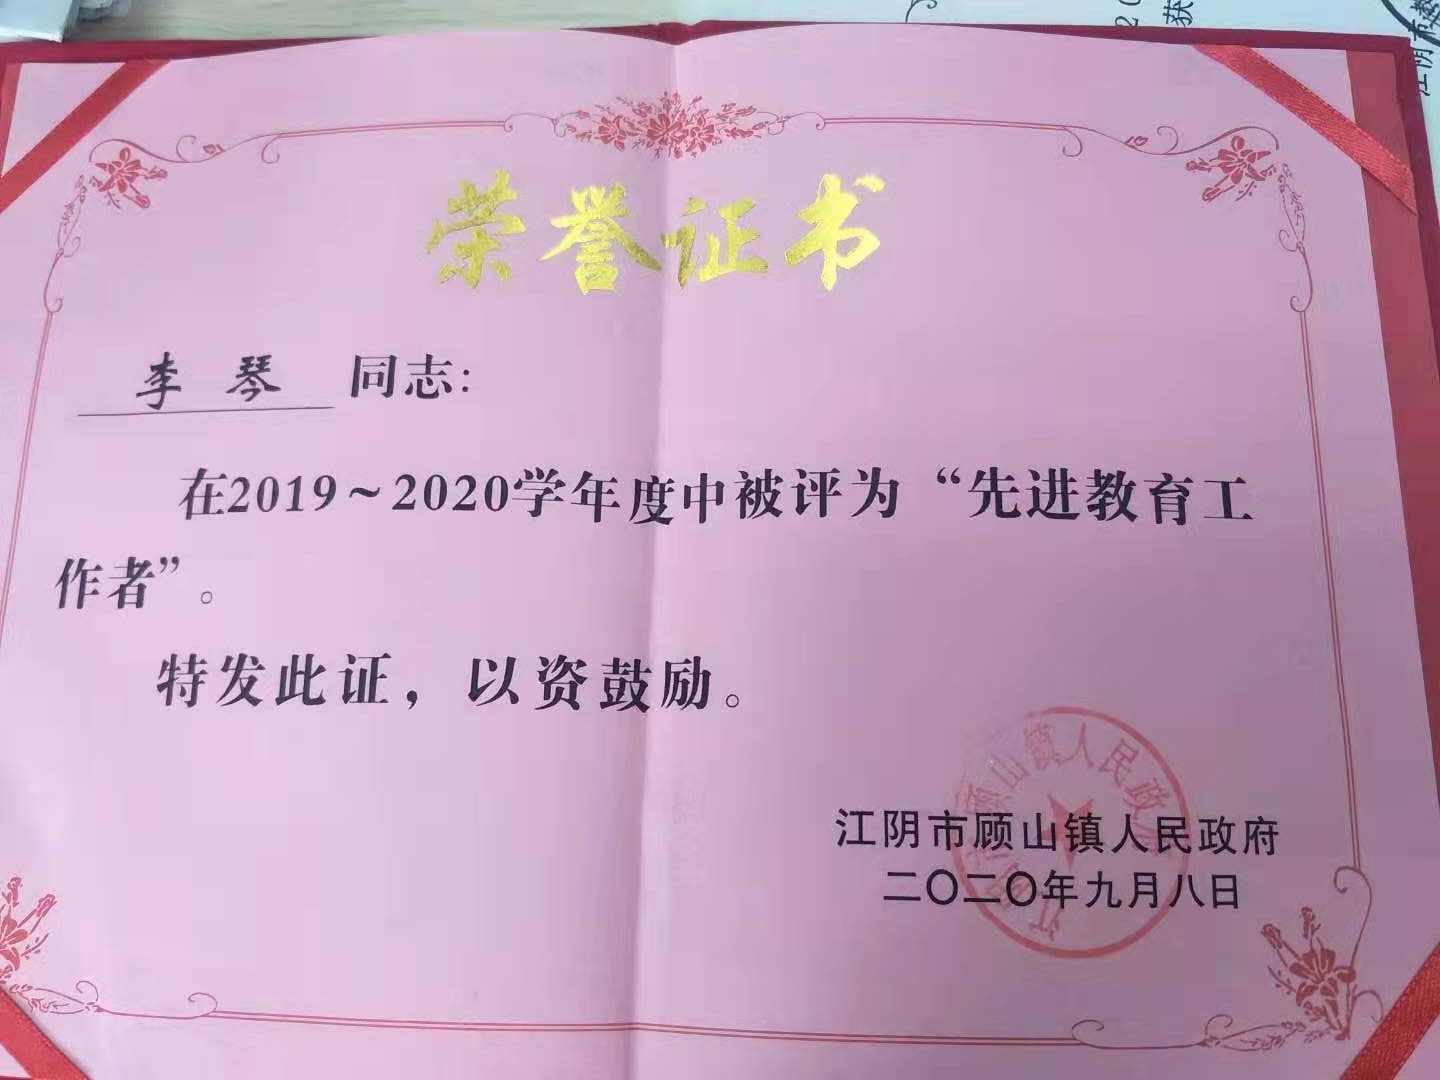 荣誉证书
李琴 同志：
在2019～2020学年度中被评为“先进教育工
作者”。
特发此证，以资鼓励。
江阴市顾山镇人民政府
二〇二〇年九月八日
江阴市顾山镇人民政府
2
获
江阴市